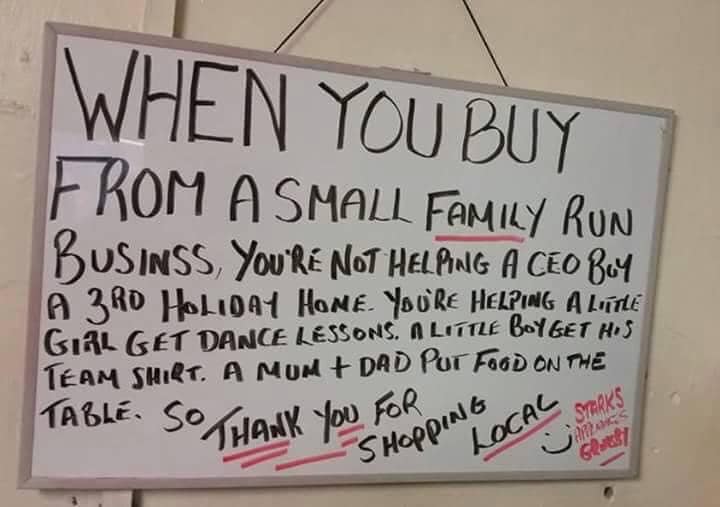 WHEN YOU BUY
FROM A SMALL FAMILY RUN
BUSINSS, YOU'RE NOT HELPING A CEO BUY
A 3RD HOLIDAY HOME. YOU'RE HELPING A LITTLE
GIRL GET DANCE LESSONS. A LITTLE BOY GET HIS
TEAM SHIRT. A MUM + DAD PUT FOOD ON THE
TABLE. SO THANK YOU FOR
SHOPPING LOCAL :)
STARKS